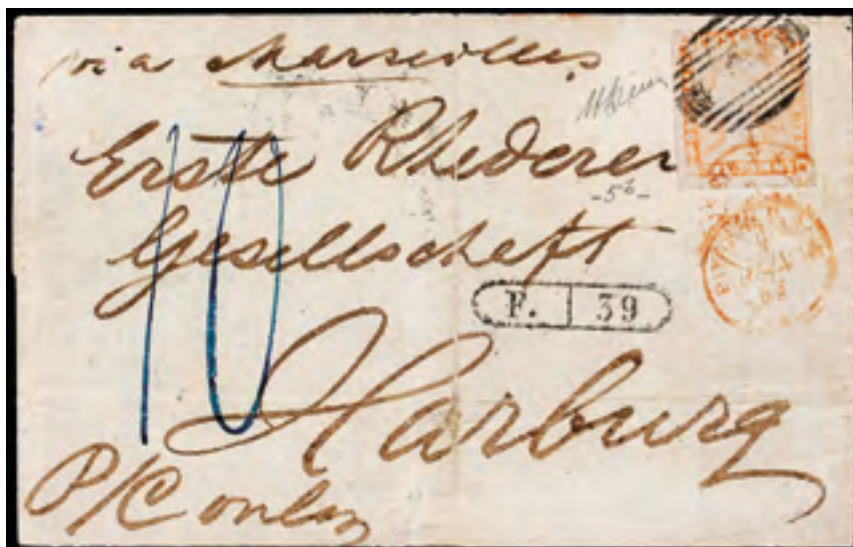 via Marseilles
Erste Rhederei
-56-
Gesellschaft
F. 39
10
Harburg
P/C